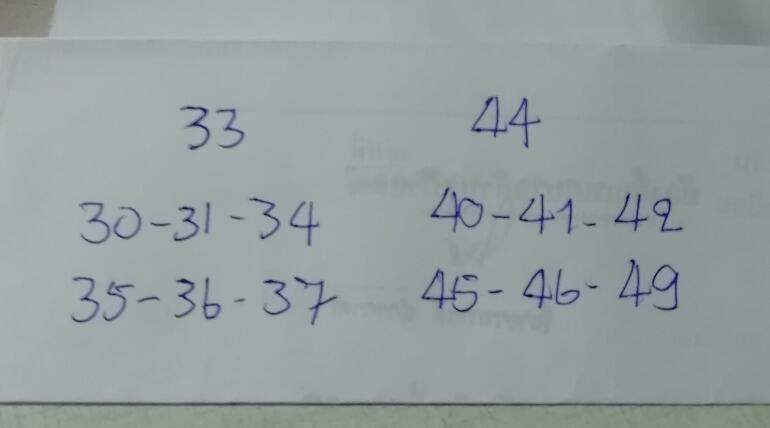 33 44
30-31-34 40-41-42
35-36-37 45-46-49